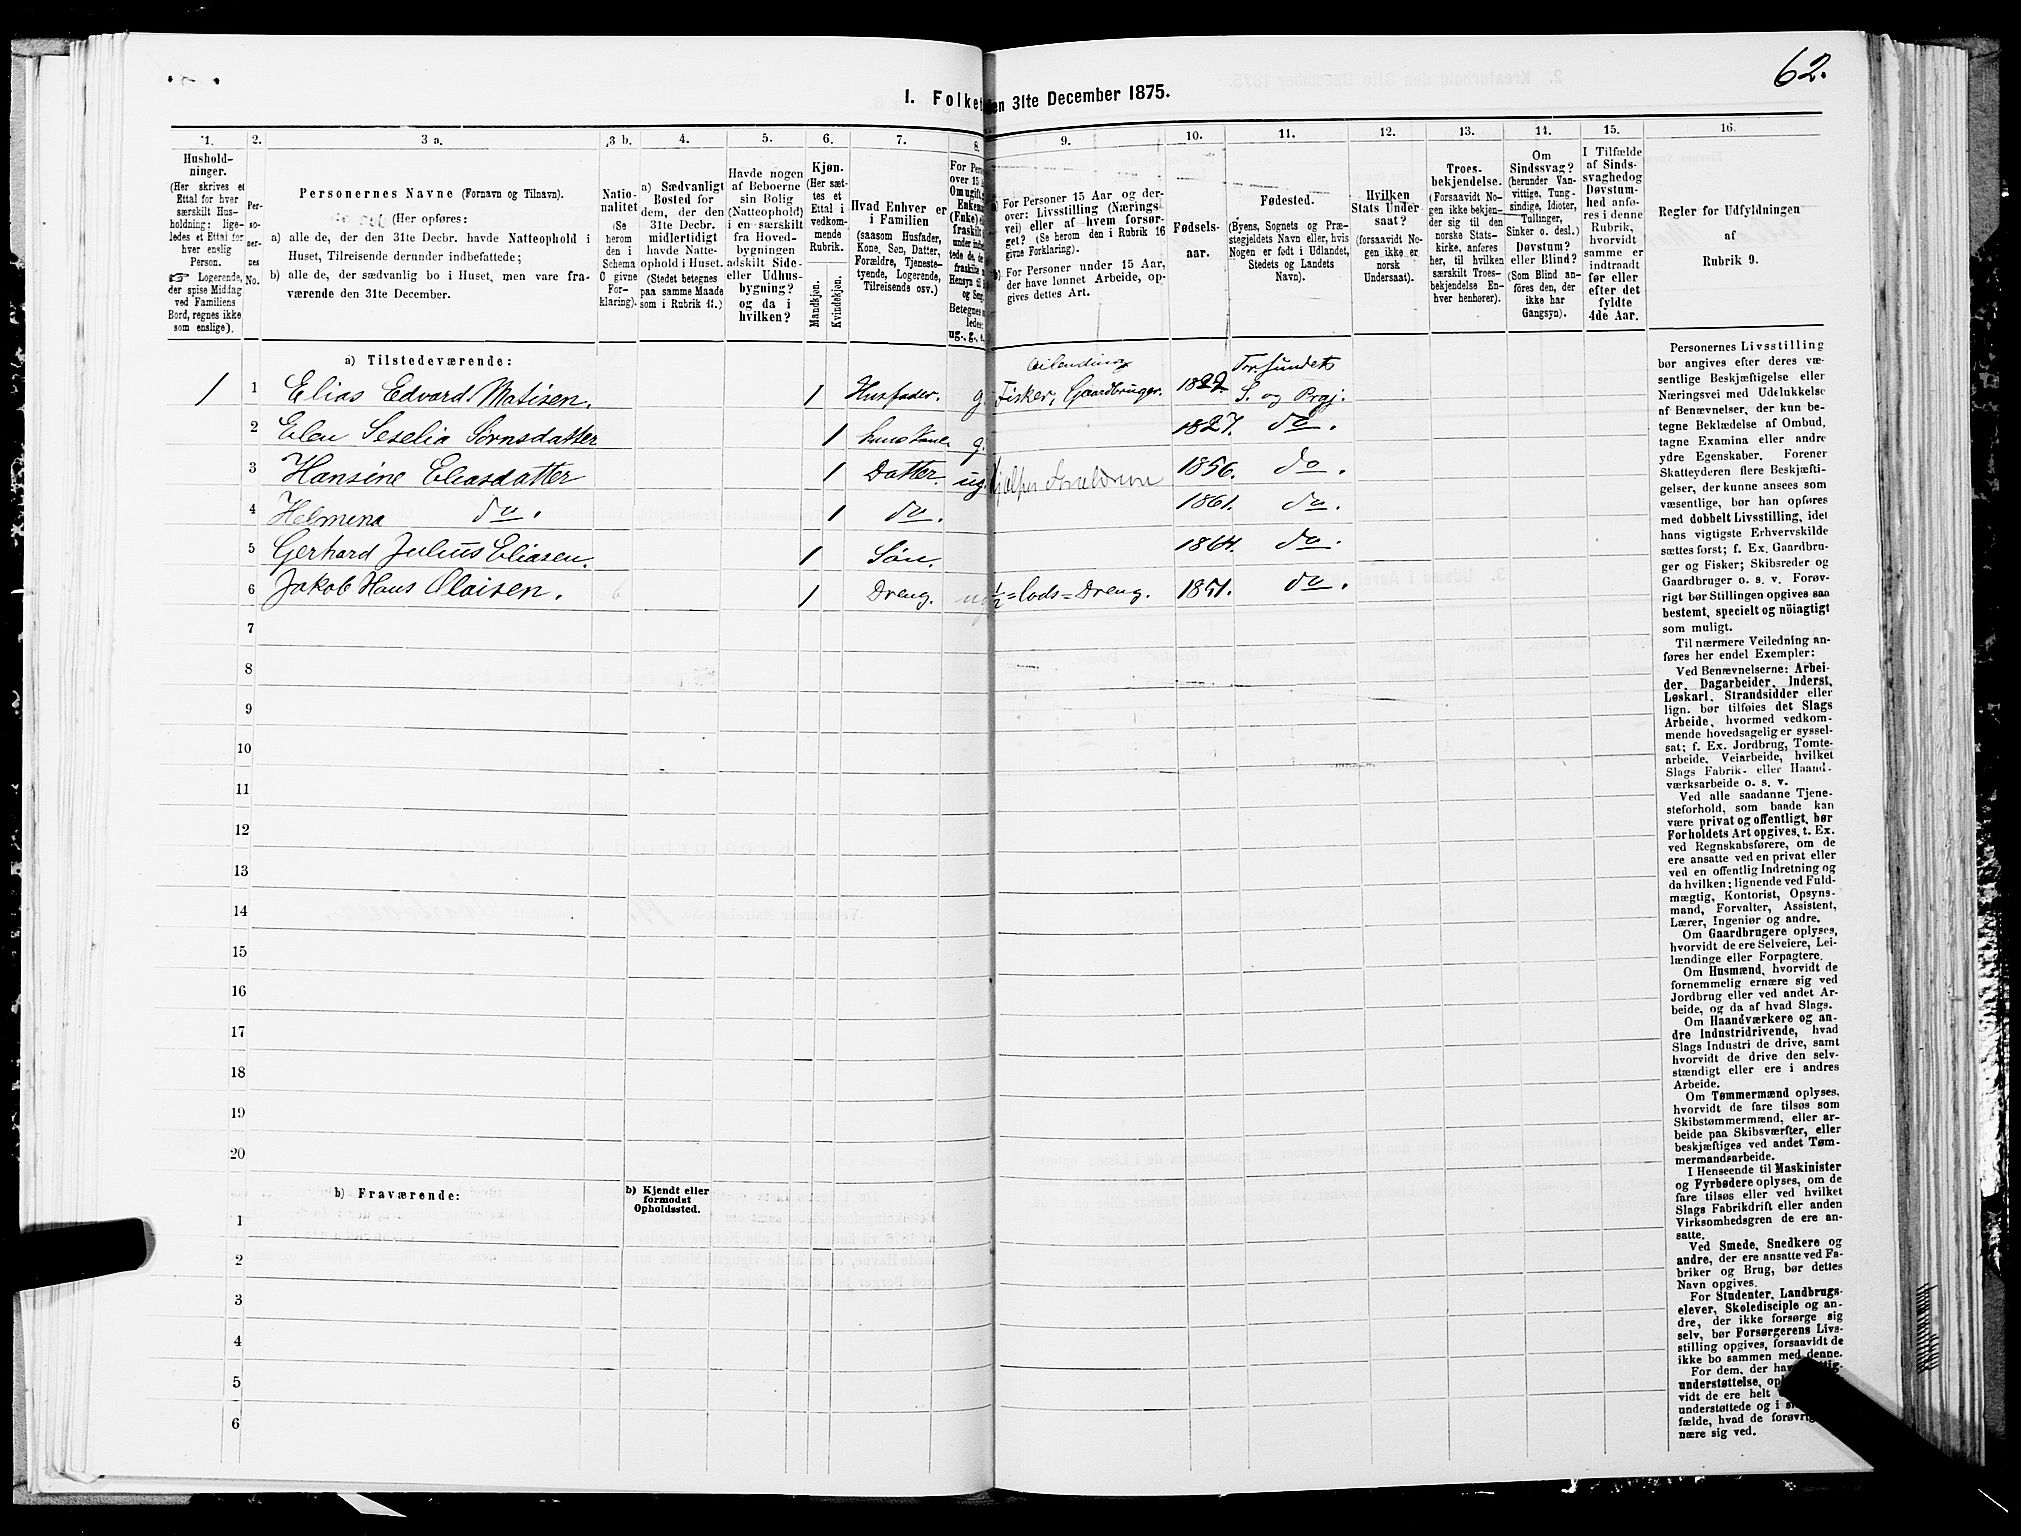 62.
I. Folket
den 31te December 1875.
1.
2.
3 a.
3 b.
4.
5.
6.
7.
8.
9.
10.
11.
12.
13.
14.
15.
16.
Hushold-
ninger.
(Her skrives et
Ettal for hver
særskilt Hus-
holdning; lige-
ledes et Ettal for
hver enslig
Person.
☞ Logerende,
der spise Middag
ved Familiens
Bord, regnes ikke
som enslige).
Per-
soner-
nes
No.
Personernes Navne (Fornavn og Tilnavn).
(Her opføres:
a) alle de, der den 31te Decbr. havde Natteophold i
Huset, Tilreisende derunder indbefattede;
b) alle de, der sædvanlig bo i Huset, men vare fra-
værende den 31te December.
Natio-
nalitet
(Se
herom
den i
Schema
O givne
For-
klaring).
a) Sædvanligt
Bosted for
dem, der den
31te Decbr.
midlertidigt
havde Natte-
ophold i Huset.
(Stedet betegnes
paa samme Maade
som i Rubrik 11.)
Havde nogen
af Beboerne
sin Bolig
(Natteophold)
i en særskilt
fra Hoved-
bygningen
adskilt Side-
eller Udhus-
bygning?
og da i
hvilken?
Kjøn.
(Her sæt-
tes et
Ettal i
vedkom-
mende
Rubrik.
Mandkjøn.
Kvindekjøn.
Hvad Enhver er
i Familien
(saasom Husfader,
Kone, Søn, Datter,
Forældre, Tjeneste-
tyende, Logerende,
Tilreisende osv.)
For Pers
over 15 A
Omugift, g
Enkema
(Enke) el
fraskilt
a) For Personer 15 Aar og der-
over: Livsstilling (Nærings-
vei) eller af hvem forsør-
get? (Se herom den i Rubrik 16
givne Forklaring).
b) For Personer under 15 Aar,
der have lønnet Arbeide, op-
gives dettes Art.
Fødsels-
aar.
Fødested.
(Byens, Sognets og Præ-
stegjeldets Navn eller, hvis
Nogen er født i Udlandet,
Stedets og Landets
Navn).
Hvilken
Stats Under
saat?
(forsaavidt No-
gen ikke er
norsk
Undersaat).
Troes-
bekjendelse.
(Forsaavidt No-
gen ikke bekjen-
der sig til den
norske Stats-
kirke, anføres
her, til hvilken
særskilt Troes-
bekjendelse En-
hver henhører).
Om
Sindssvag?
(herunder Van-
vittige, Tung-
sindige, Idioter,
Tullinger,
Sinker o. desl.)
Døvstum?
eller Blind?
(Som Blind an-
føres den, der
ikke har
Gangsyn).
I Tilfælde
af Sinds-
svaghedog
Døvstum-
hed anfø-
res i denne
Rubrik,
hvorvidt
samme er
indtraadt
før eller
efter det
fyldte
4de Aar.
Regler for Udfyldningen
af
Rubrik 9.
a) Tilstedeværende:
1 1 Elias Edvard Matisen. 1 Husfader. g Fisker, Gaardbruger. 18 Torsundets S. og Præj.
2 Elen Seselia Sørnsdatter 1 g. 1827. do.
3 Hansine Eliasdatter 1 Datter. ug. 1856. do.
4 Helmena do. 1 do. 1861. do.
5 Gerhard Julius Eliasen. 1 Søn. 1864. do.
6 Jakob Hans Olaisen. 1 Dreng. ug ½ = Lods = Dreng. 1851. do.
7
8
9
10
11
12
13
14
15
16
17
18
19
20
b) Fraværende:
b) Kjendt eller
formodet
Opholdssted.
1
2
3
4
5
6
Personernes Livsstilling
bør angives efter deres væ-
sentlige Beskjæftigelse eller
Næringsvei med Udelukkelse
af Benævnelser, der kun be-
tegne Beklædelse af Ombud,
tagne Examina eller andre
ydre Egenskaber. Forener
Skatteyderen flere Beskjæfti-
gelser, der kunne ansees som
væsentlige, bør han opføres
med dobbelt Livsstilling, idet
hans vigtigste Erhvervskilde
sættes først; f. Ex. Gaardbru-
ger og Fisker; Skibsreder og
Gaardbruger o. s. v. Forøv-
rigt bør Stillingen opgives saa
bestemt, specielt og nöiagtigt
som muligt.
Til nærmere Veiledning an-
føres her endel Exempler:
Ved Benævnelserne: Arbei-
der, Dagarbeider, Inderst,
Løskarl, Strandsidder eller
lign. bør tilføies det Slags
Arbeide, hvormed vedkom-
mende hovedsagelig er syssel-
sat; f. Ex. Jordbrug, Tomte-
arbeide, Veiarbeide, hvilket
Slags Fabrik- eller Haand-
værksarbeide o. s. v.
Ved alle saadanne Tjene-
steforhold, som baade kan
være privat og offentligt, bør
Forholdets Art opgives, t. Ex.
ved Regnskabsførere, om de
ere ansatte ved en privat eller
ved en offentlig Indretning og
da hvilken; lignende ved Fuld-
mægtig, Kontorist, Opsyns-
mand, Forvalter, Assistent,
Lærer, Ingeniør og andre.
Om Gaardbrugere oplyses,
hvorvidt de ere Selveiere, Lei-
lændinge eller Forpagtere.
Om Husmænd, hvorvidt de
fornemmelig ernære sig ved
Jordbrug eller ved andet Ar-
beide, og da af hvad Slags.
Om Haandværkere og an-
dre Industridrivende, hvad
Slags Industri de drive, samt
hvorvidt de drive den selv-
stændigt eller ere i andres
Arbeide.
Om Tømmermænd oplyses,
hvorvidt de fare tilsøs som
Skibstømmermænd, eller ar-
beide paa Skibsværfter, eller
beskjæftiges ved andet Tøm-
mermandsarbeide.
I Henseende til Maskinister
og Fyrbødere oplyses, om de
fare tilsøs eller ved hvilket
Slags Fabrikdrift eller anden
Virksomhedsgren de ere an-
satte.
Ved Smede, Snedkere og
andre, der ere ansatte ved Fa-
briker og Brug, bør dettes
Navn opgives.
For Studenter, Landbrugs-
elever, Skoledisciple og an-
dre, der ikke forsørge sig
selv, bør Forsørgerens Livs-
stilling opgives, forsaavidt de
ikke bo sammen med denne.
For dem, der hav
understøttelse, op
vidt de ere helt
understøttede og i
fælde, hvad de forøvrig
nære sig ved.